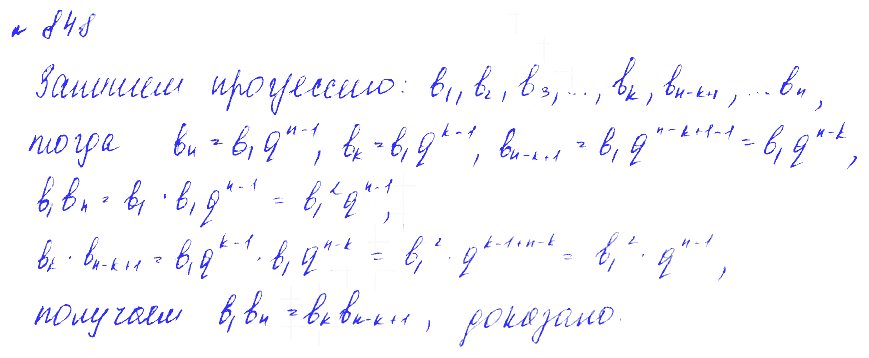 № 848
Запишем прогрессию: b₁, b₂, b₃, ..., bₖ, bₙ₋ₖ₊₁, ... bₙ,
тогда bₙ = b₁qⁿ⁻¹, bₖ = b₁qᵏ⁻¹, bₙ₋ₖ₊₁ = b₁qⁿ⁻ᵏ⁺¹⁻¹ = b₁qⁿ⁻ᵏ,
b₁bₙ = b₁ · b₁qⁿ⁻¹ = b₁²qⁿ⁻¹,
bₖ · bₙ₋ₖ₊₁ = b₁qᵏ⁻¹ · b₁qⁿ⁻ᵏ = b₁² · qᵏ⁻¹⁺ⁿ⁻ᵏ = b₁² · qⁿ⁻¹,
получаем b₁bₙ = bₖbₙ₋ₖ₊₁, доказано.